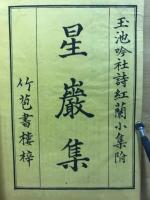 玉池吟社詩紅蘭小集附
星巖集
竹苞書樓梓